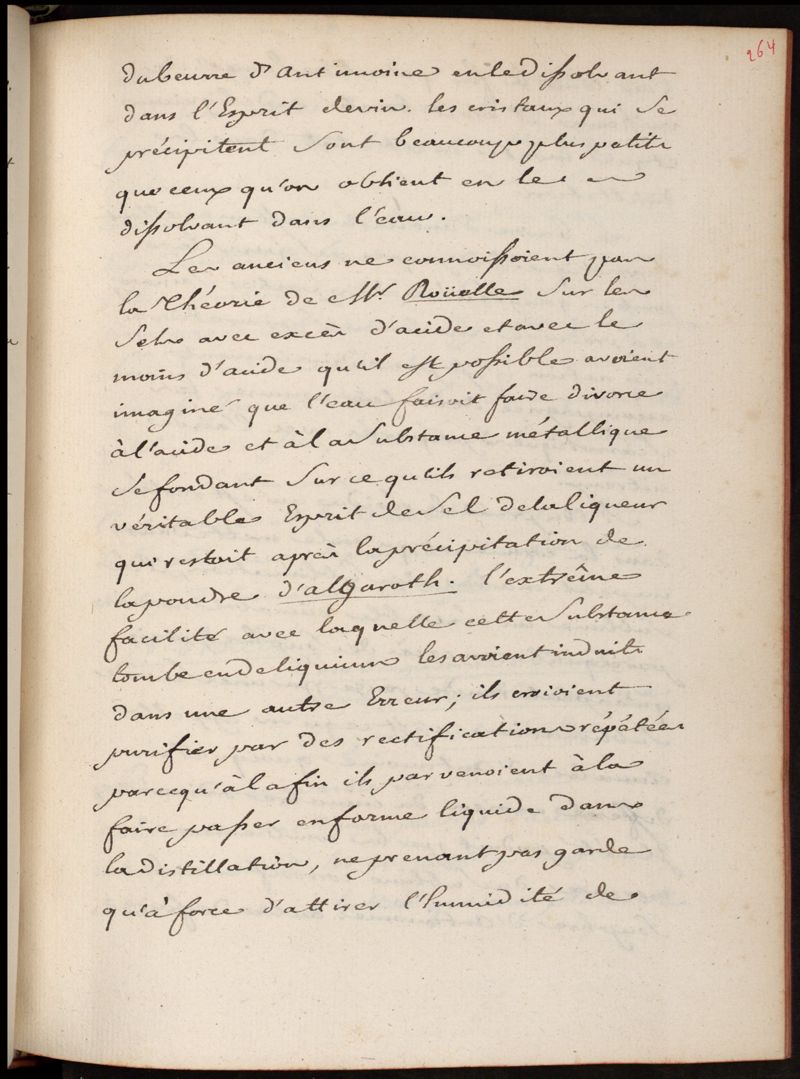 264
du beurre d'Antimoine en le dissolvant
dans l'Esprit de vin. les cristaux qui se
précipitent sont beaucoup plus petits
que ceux qu'on obtient en le
dissolvant dans l'eau.
Les anciens ne connoissoient pas
la Théorie de Mr. Roüelle sur les
Sels avec excès d'acide et avec le
moins d'acide qu'il est possible avoient
imaginé que l'eau faisoit faire divorce
à l'acide et à la Substance métallique
se fondant sur ce qu'ils retiroient un
véritable Esprit de Sel de la liqueur
qui restoit après la précipitation de
la poudre d'algaroth. l'extrême
facilité avec laquelle cette Substance
tombe en deliquium les avoient induits
dans une autre Erreur; ils croioient
purifier par des rectifications répétées
parcequ'à la fin ils parvenoient à la
faire passer en forme liquide dans
la distillation, ne prenant pas garde
qu'à force d'attirer l'humidité de